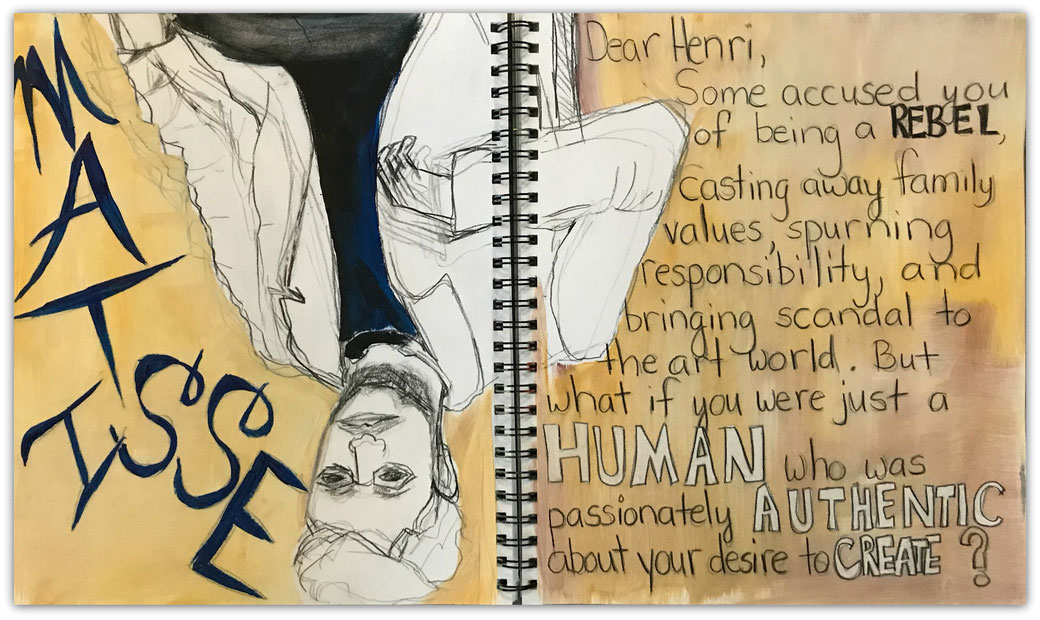 MATISSE
Dear Henri,
Some accused you
of being a REBEL,
casting away family
values, spurning
responsibility, and
bringing scandal to
the art world. But
what if you were just a
HUMAN who was
passionately AUTHENTIC
about your desire to CREATE?